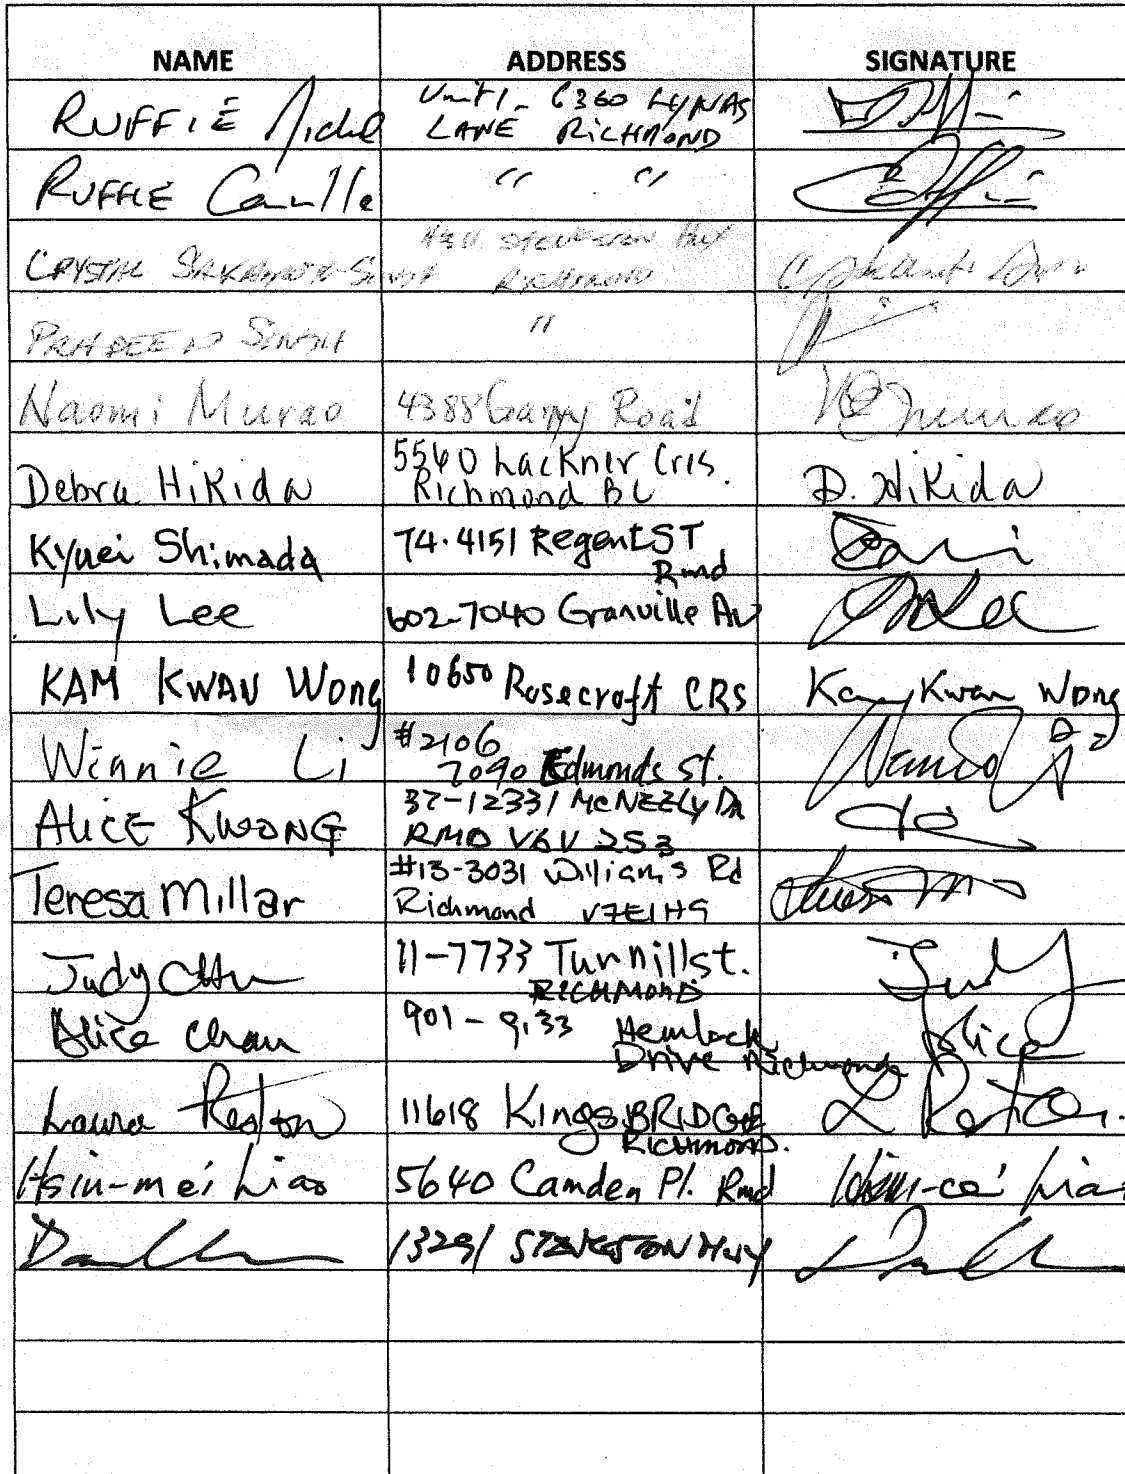 NAME ADDRESS SIGNATURE
RUFFIÉ Michel Unit 1- 6360 LYNAS
LANE RICHMOND
RUFFIE Camille " "
CRYSTAL SAKAMOTO-SINGH 4311 STEVESTON HWY
RICHMOND
PRADEEP SINGH "
Naomi Murao 4388 Garry Road
Debra Hikida 5540 Lackner Cres.
Richmond BC D. Hikida
Kyuei Shimada 74-4151 Regent ST
Rmd
Lily Lee 602-7040 Granville Av
KAM KWAN WONG 10650 Rosecroft CRS Kam Kwan Wong
Winnie Li #2106
7090 Edmonds St.
ALICE KWONG 37-12331 MCNEELY DR
RMD V6V 2S3
Teresa Millar #13-3031 Williams Rd
Richmond V7E1H9
Judy Chu 11-7733 Turnill st. Judy
RICHMOND
Alice Chan 901 - 9133 Hemlock Alice
Drive Richmond
Laura Reston 11618 KINGSBRIDGE L Reston
RICHMOND.
Hsin-mei Liao 5640 Camden Pl. Rmd
13291 STEVESTON HWY